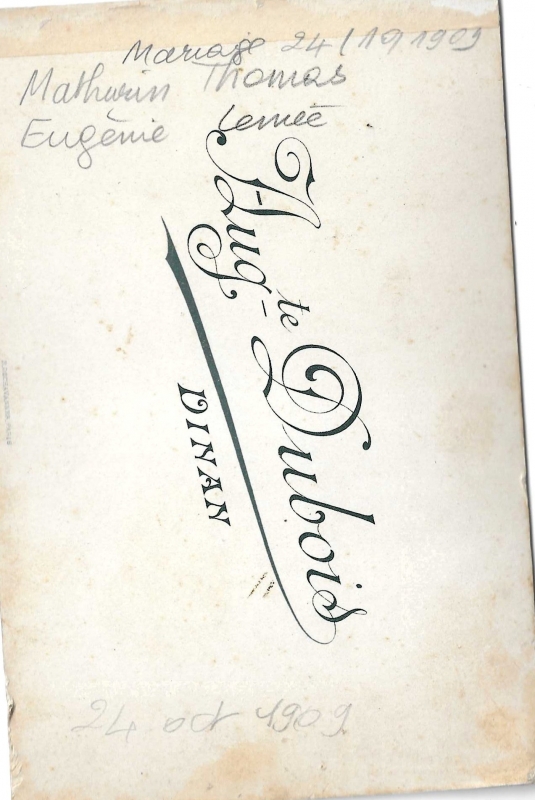 Mariage 24/10/1909
Mathurin Thomas
Eugénie Lemée
Aug-te Dubois
DINAN
24 oct 1909